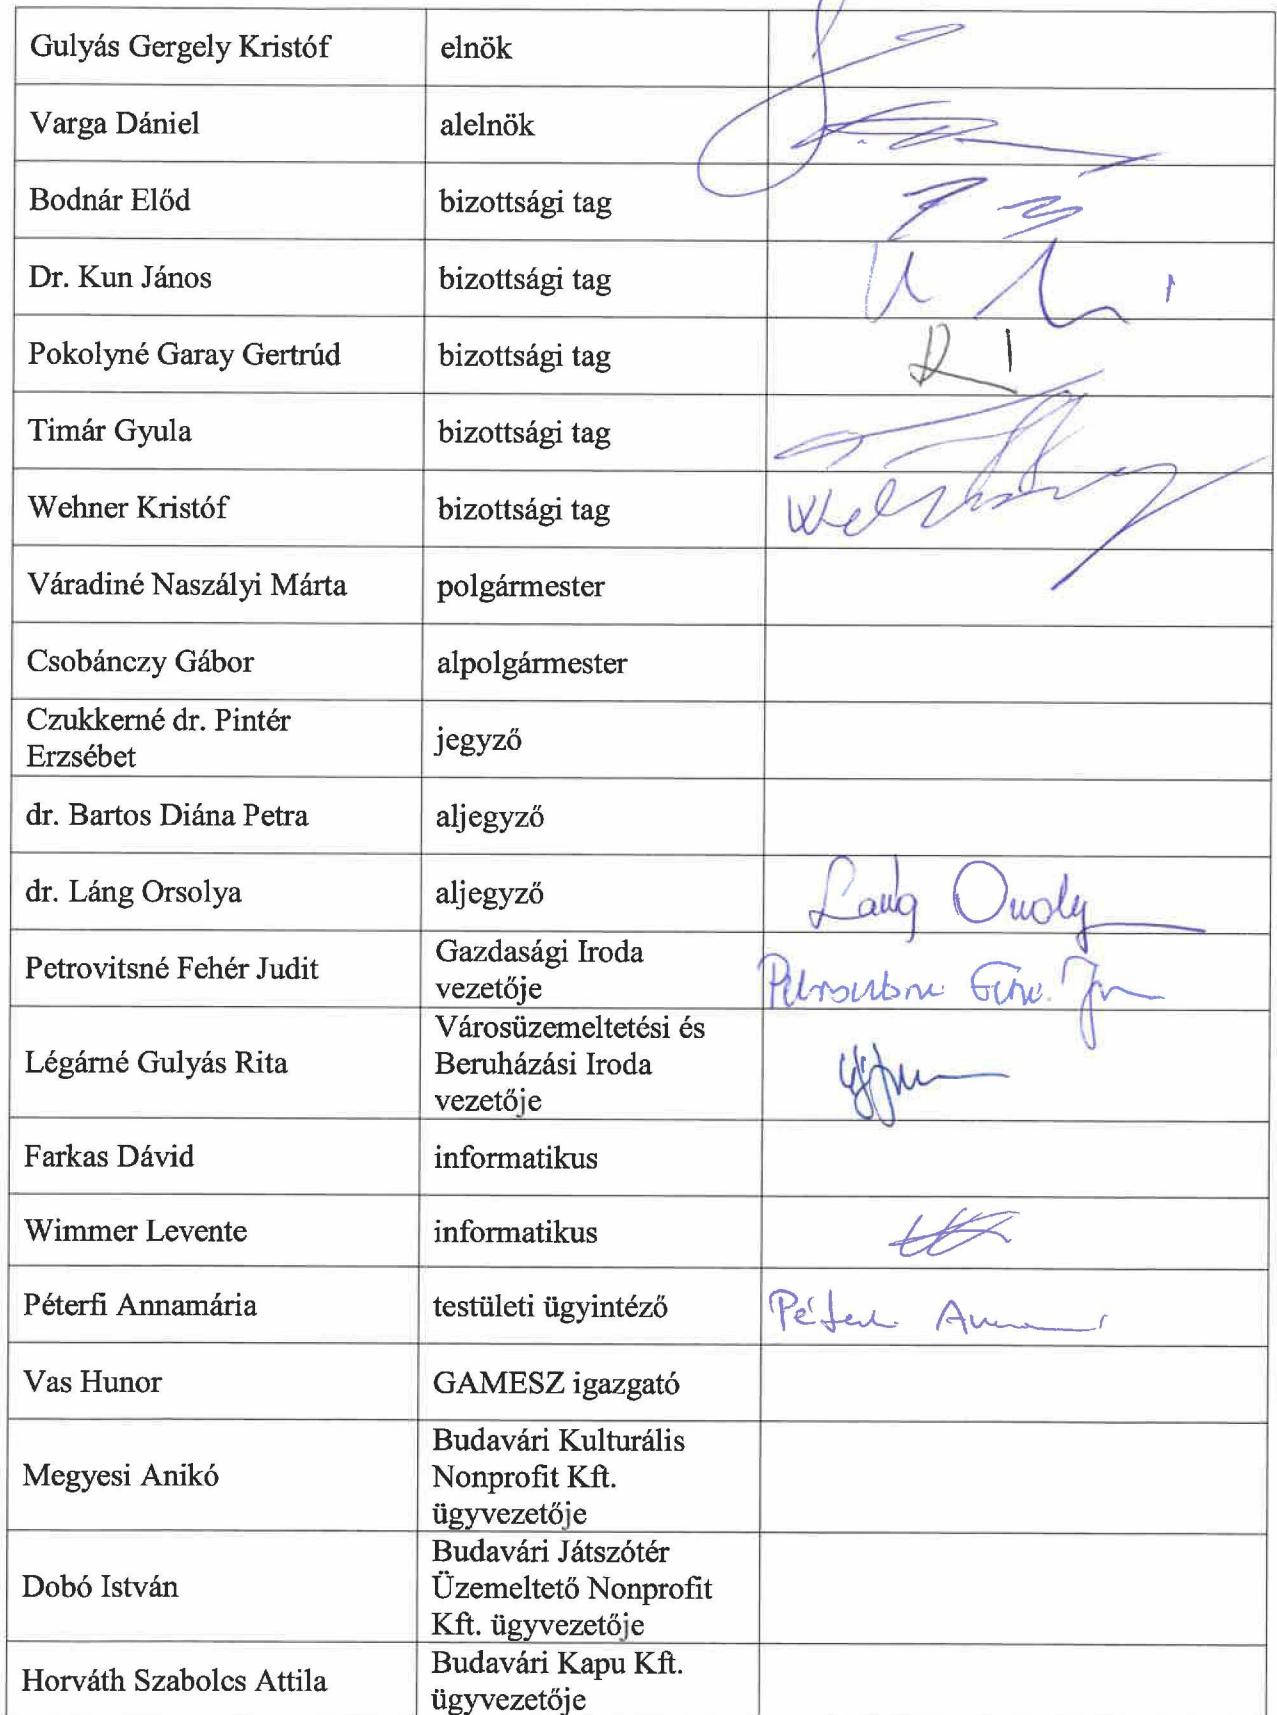 Gulyás Gergely Kristóf elnök
Varga Dániel alelnök
Bodnár Előd bizottsági tag
Dr. Kun János bizottsági tag
Pokolyné Garay Gertrúd bizottsági tag
Timár Gyula bizottsági tag
Wehner Kristóf bizottsági tag
Váradiné Naszályi Márta polgármester
Csobánczy Gábor alpolgármester
Czukkerné dr. Pintér
Erzsébet
jegyző
dr. Bartos Diána Petra aljegyző
dr. Láng Orsolya aljegyző
Petrovitsné Fehér Judit
Gazdasági Iroda
vezetője
Légárné Gulyás Rita
Városüzemeltetési és
Beruházási Iroda
vezetője
Farkas Dávid informatikus
Wimmer Levente informatikus
Péterfi Annamária testületi ügyintéző
Vas Hunor GAMESZ igazgató
Megyesi Anikó
Budavári Kulturális
Nonprofit Kft.
ügyvezetője
Dobó István
Budavári Játszótér
Üzemeltető Nonprofit
Kft. ügyvezetője
Horváth Szabolcs Attila
Budavári Kapu Kft.
ügyvezetője